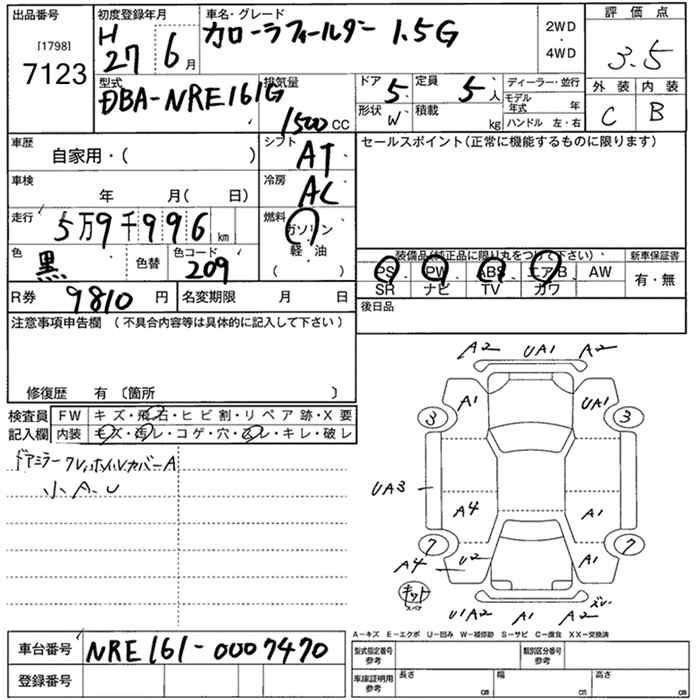 出品番号 初度登録年月 車名・グレード 2WD・4WD 評価点
[1798] 7123 H27 6月 カローラフィールダー 1.5G 3.5
型式 排気量 ドア 定員 ディーラー・並行 外装 内装
DBA-NRE161G 1500cc 5 5人 モデル年式 年 C B
形状 W 積載 kg ハンドル 左・右
車歴 自家用・( ) シフト AT セールスポイント(正常に機能するものに限ります)
車検 年 月( 日) 冷房 AC
走行 5万9千996km 燃料 ガソリン・軽・油 ( )
色 黒 色替 色コード 209
装備品(純正品に限り丸をつけて下さい) 新車保証書
PS PW ABS エアB AW 有・無
SR ナビ TV カワ
R券 9810円 名変期限 月 日 後日品
注意事項申告欄 (不具合内容等は具体的に記入して下さい)
修復歴 有 〔箇所 〕
検査員記入欄 FW キズ・飛石・ヒビ割・リペア跡・X要
内装 キズ・汚レ・コゲ・穴・スレ・キレ・破レ
ドアミラー ホイルカバーA
小A.U
A2 UA1 A2
A1 UA1
3 3
UA3
A4 A1
7 7
A4 U2 A1
キット スペア
U1A2 A1 A2
A-キズ E-エクボ U-凹み W-補修跡 S-サビ C-腐食 XX-交換済
車台番号 NRE161-0007470
登録番号
型式指定番号 参考 類別区分番号 参考
車庫証明用 参考 長さ cm 幅 cm 高さ cm